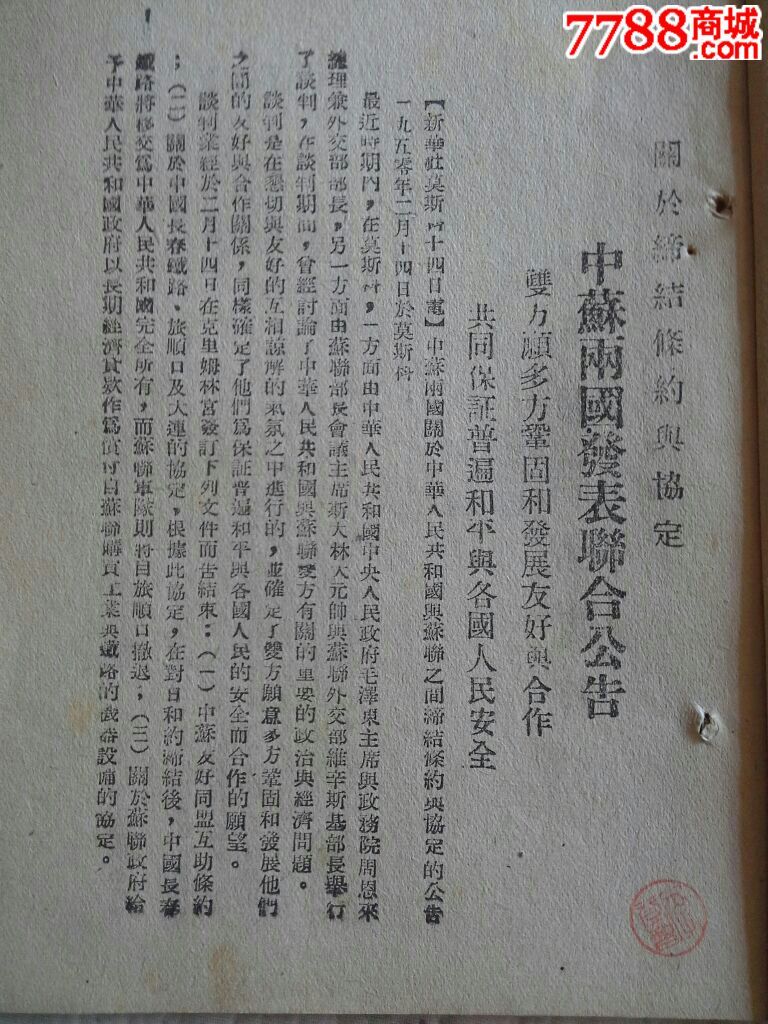 7788商城
.com
關於締結條約與協定
中蘇兩國發表聯合公告
雙方願多方鞏固和發展友好與合作
共同保証普遍和平與各國人民安全
【新華社莫斯科十四日電】中蘇兩國關於中華人民共和國與蘇聯之間締結條約與協定的公告
一九五零年二月十四日於莫斯科
最近時期內，在莫斯科，一方面由中華人民共和國中央人民政府毛澤東主席與政務院周恩來
總理兼外交部部長，另一方面由蘇聯部長會議主席斯大林大元帥與蘇聯外交部維辛斯基部長舉行
了談判，在談判期間，曾經討論了中華人民共和國與蘇聯雙方有關的重要的政治與經濟問題。
談判是在懇切與友好的互相諒解的氣氛之中進行的，並確定了雙方願意多方鞏固和發展他們
之間的友好與合作關係，同樣確定了他們為保証普遍和平與各國人民的安全而合作的願望。
談判業經於二月十四日在克里姆林宮簽訂下列文件而告結束：（一）中蘇友好同盟互助條約
；（二）關於中國長春鐵路、旅順口及大連的協定，根據此協定，在對日和約締結後，中國長春
鐵路將移交爲中華人民共和國完全所有，而蘇聯軍隊則將自旅順口撤退；（三）關於蘇聯政府給
予中華人民共和國政府以長期經濟貸款作爲償付自蘇聯購買工業與鐵路的機器設備的協定。